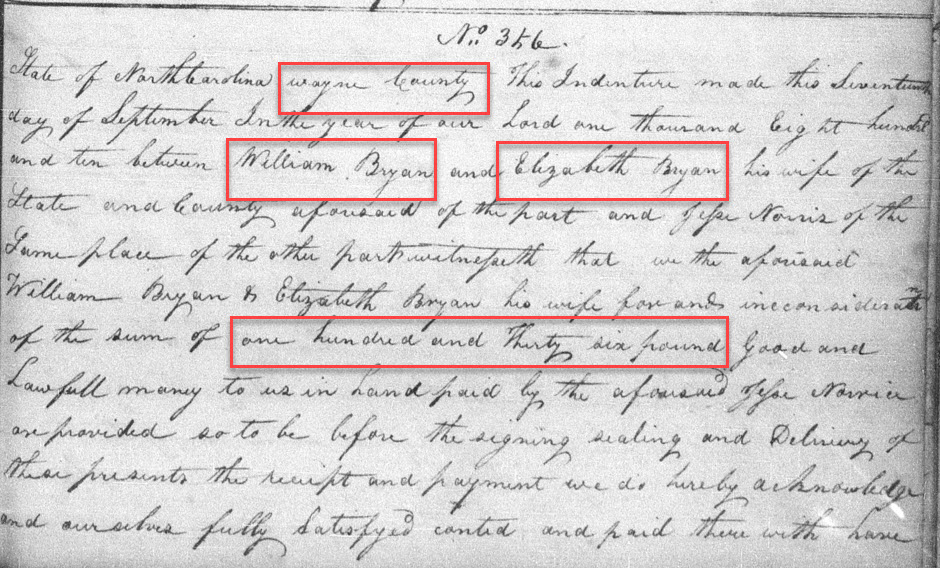 No. 356.
State of North Carolina wayne County This Indenture made this Seventeenth
day of September In the year of our Lord one thousand Eight hundrd
and ten between William Bryan and Elizabeth Bryan his wife of the
State and County aforesaid of the part and Jesse Norris of the
Same place of the other part witnesseth that we the aforesaid
William Bryan & Elizabeth Bryan his wife for and in consideratn
of the sum of one hundred and Thirty six pound Good and
Lawfull money to us in hand paid by the aforesaid Jesse Norrice
or provided so to be before the signing sealing and Delivery of
these presents the receipt and payment we do hereby acknowledge
and ourselves fully Satisfyed conted and paid there with have